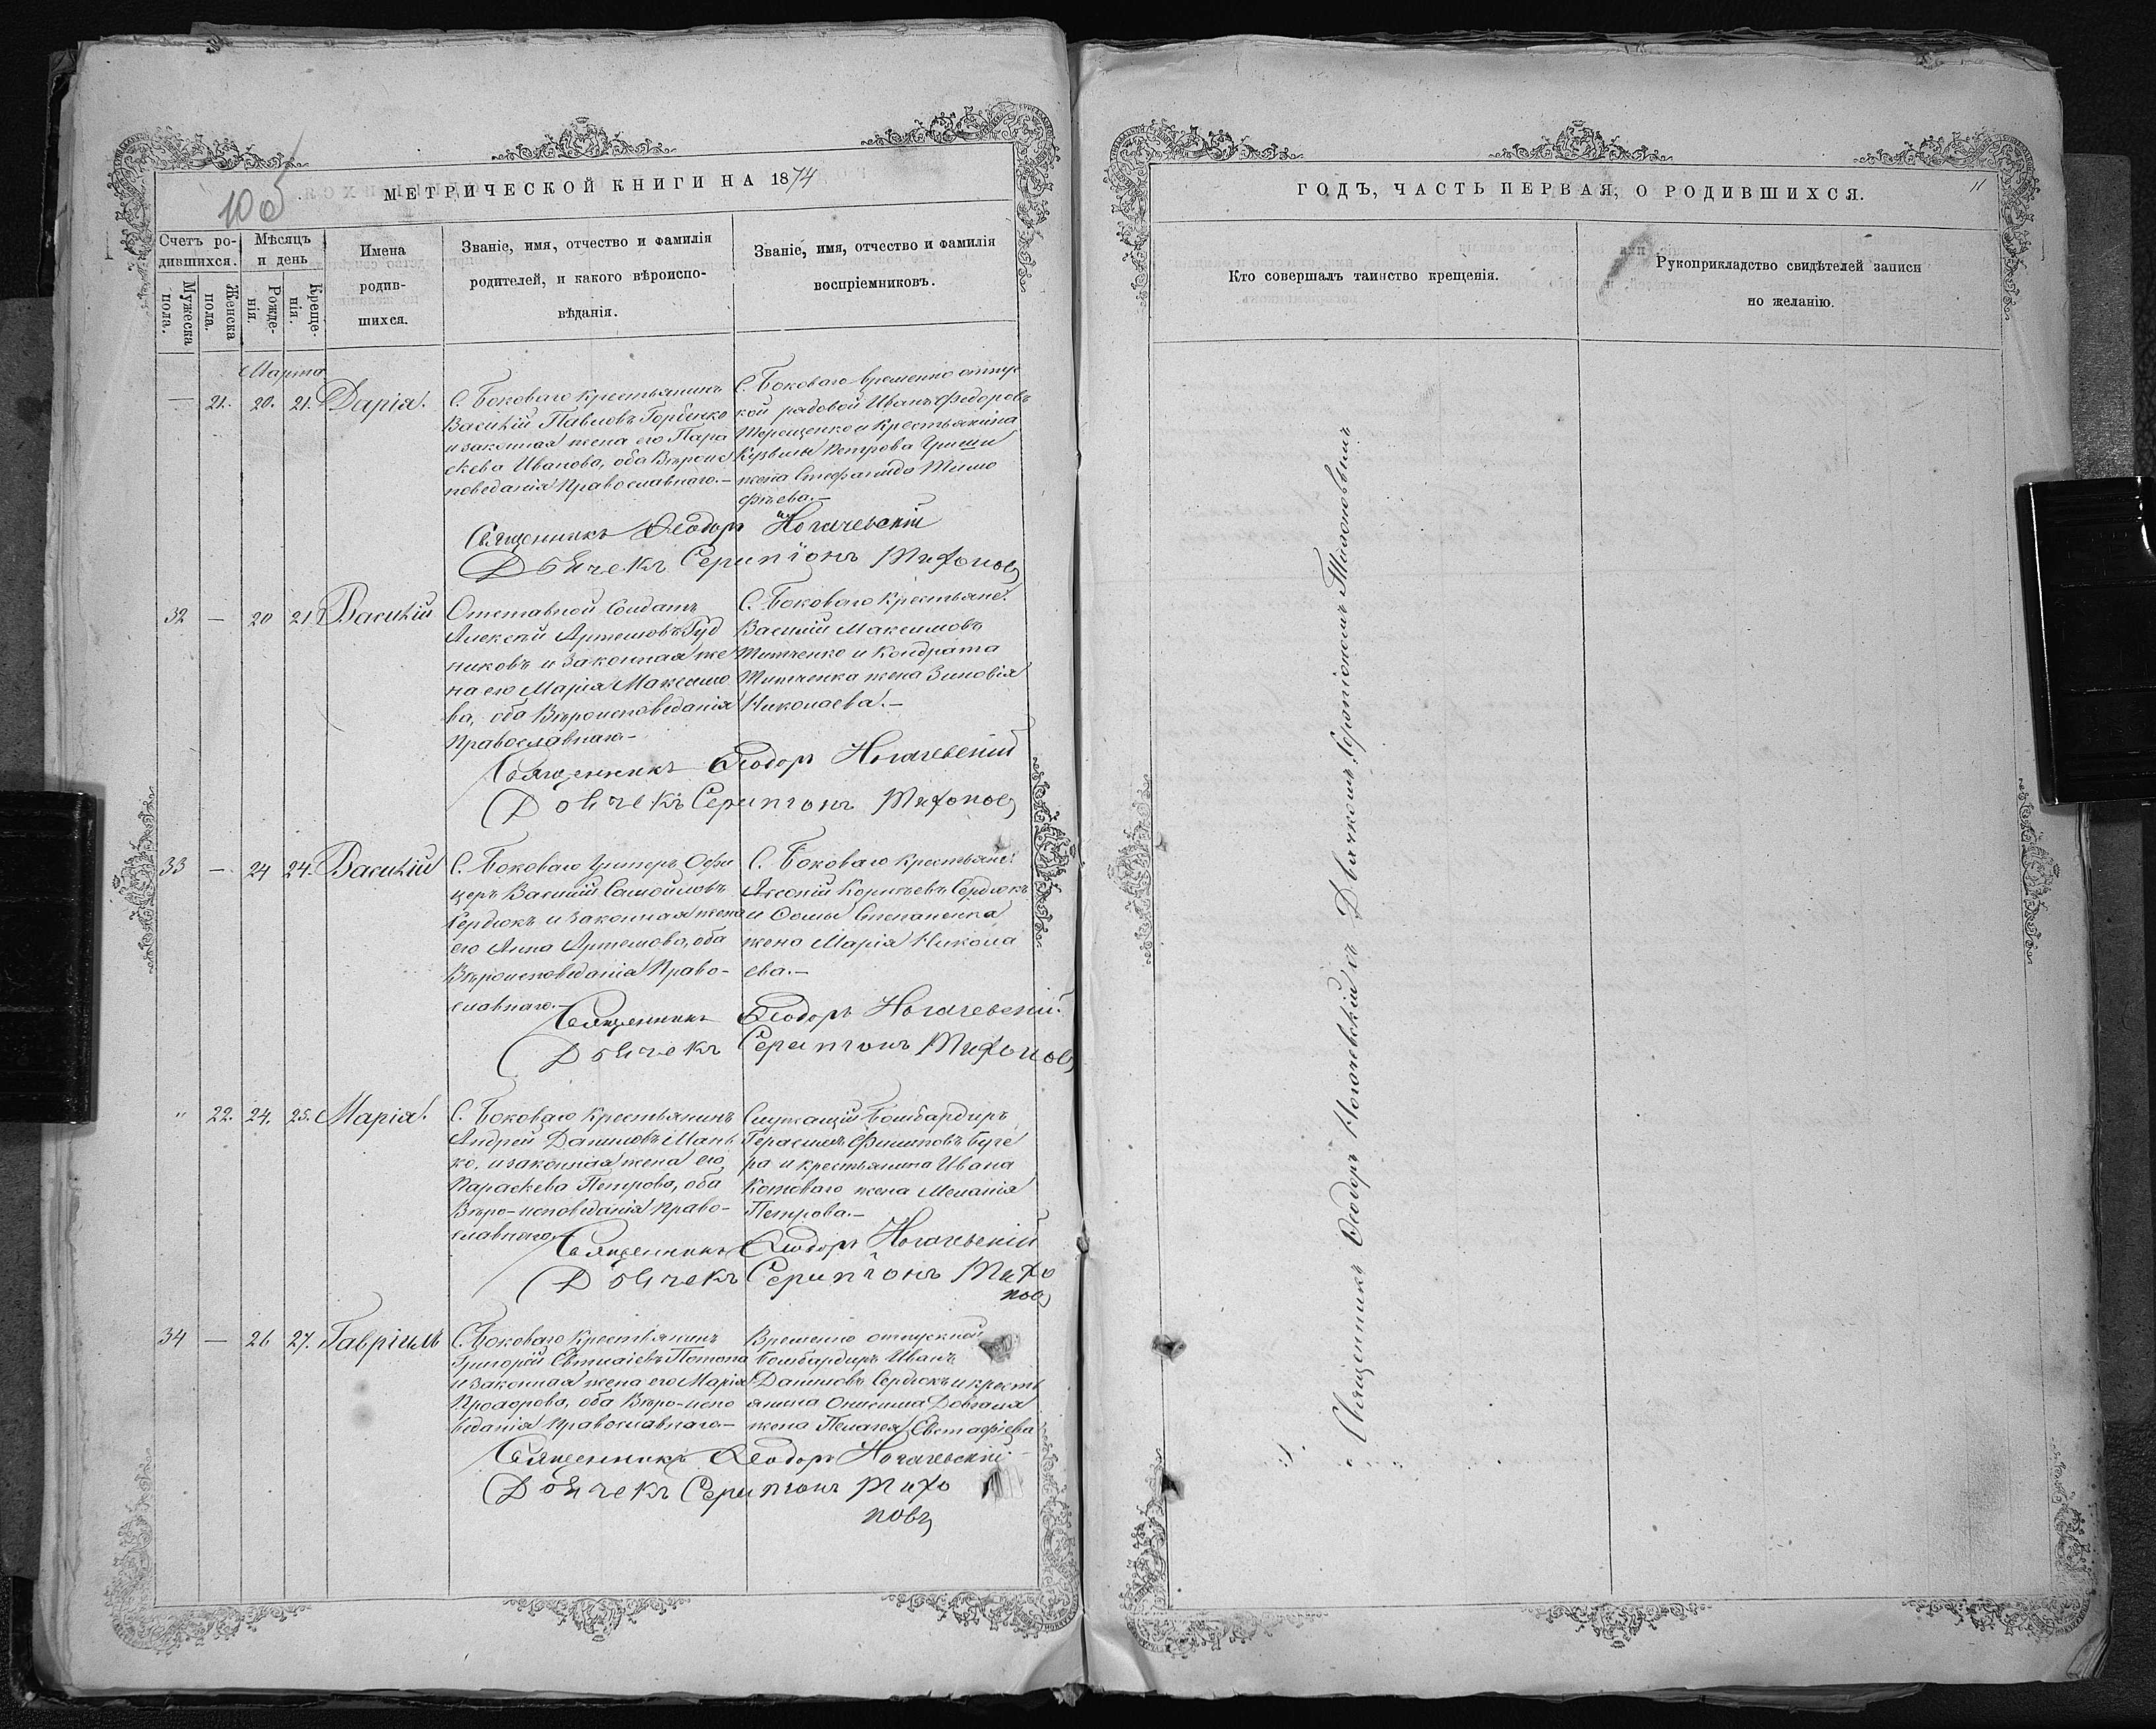 МЕТРИЧЕСКОЙ КНИГИ НА 1874
Счетъ ро-
дившихся.
Мужеска
пола.
Женска
пола.
Мѣсяцъ
и день
Рожде-
нія.
Креще-
нія.
Имена
родив-
шихся.
Званіе, имя, отчество и фамилія
родителей, и какого вѣроиспо-
вѣданія.
Званіе, имя, отчество и фамилія
воспріемниковъ.
Марта
— 21. 20. 21. Дарія.
С. Боковаго крестьянинъ
Василій Павловъ Горбенко
и законная жена его Пара
скева Иванова, оба Вѣроис
поведанія Православнаго.—
С. Боковаго временно отпус
кой рядовой Иванъ Федоровъ
Терещенко и крестьянина
Кузьмы Петрова
жена Стефанида Тимо
фѣева.—
Священникъ Ѳеодоръ Ногачевскій
Дьячекъ Серапіонъ Тихоновъ
32 — 20 21 Василій
Отставной Солдатъ
Алексѣй Артемовъ Гуд
никовъ и законная же
на его Марія Максимо
ва, оба Вѣроисповеданія
Православнаго—
С. Боковаго крестьяне:
Василій Максимовъ
Титченко и Кондрата
Титченка жена Зиновія
Николаева.—
Священникъ Ѳеодоръ Ногачевскій
Дьячекъ Серапіонъ Тихоновъ
33 — 24 24. Василій
С. Боковаго Унтеръ Офи
церъ Василій Самойловъ
Сердюкъ и законная жена
его Анна Артемова, оба
Вѣроисповеданія Право-
славнаго.—
С. Боковаго крестьяне:
Алексѣй Корнѣевъ Сердюкъ
и Ѳомы Степаненка
жена Марія Никола
ева.—
Священникъ Ѳеодоръ Ногачевскій.
Дьячекъ Серапіонъ Тихоновъ
" 22. 24. 25. Марія.
С. Боковаго Крестьянинъ
Андрей Даниловъ Мань
ко, и законная жена его
Параскева Петрова, оба
Вѣро-исповеданія Право-
славнаго
Служащій Бомбардиръ
Герасимъ Филиповъ Буче
ра и крестьянина Ивана
Котоваго жена Меланія
Петрова.—
Священникъ Ѳеодоръ Ногачевскій
Дьячекъ Серапіонъ Тихо
новъ
34 — 26 27. Гавріилъ
С. Боковаго Крестьянинъ
Григорій Евтихіевъ Потопа
и законная жена его Марія
Прохорова, оба Вѣро-испо
веданія Православнаго—
Временно отпускной
Бомбардиръ Иванъ
Даниловъ Сердюкъ и кресть
янина Онисима Довгаля
жена Пелагея Евстафіева
Священникъ Ѳеодоръ Ногачевскій
Дьячекъ Серапіонъ Тихо
новъ
ГОДЪ, ЧАСТЬ ПЕРВАЯ, О РОДИВШИХСЯ.
11
Кто совершалъ таинство крещенія.
Рукоприкладство свидѣтелей записи
по желанію.
Священникъ Ѳеодоръ Ногачевскій съ Дьячкомъ Серапіономъ Тихоновымъ